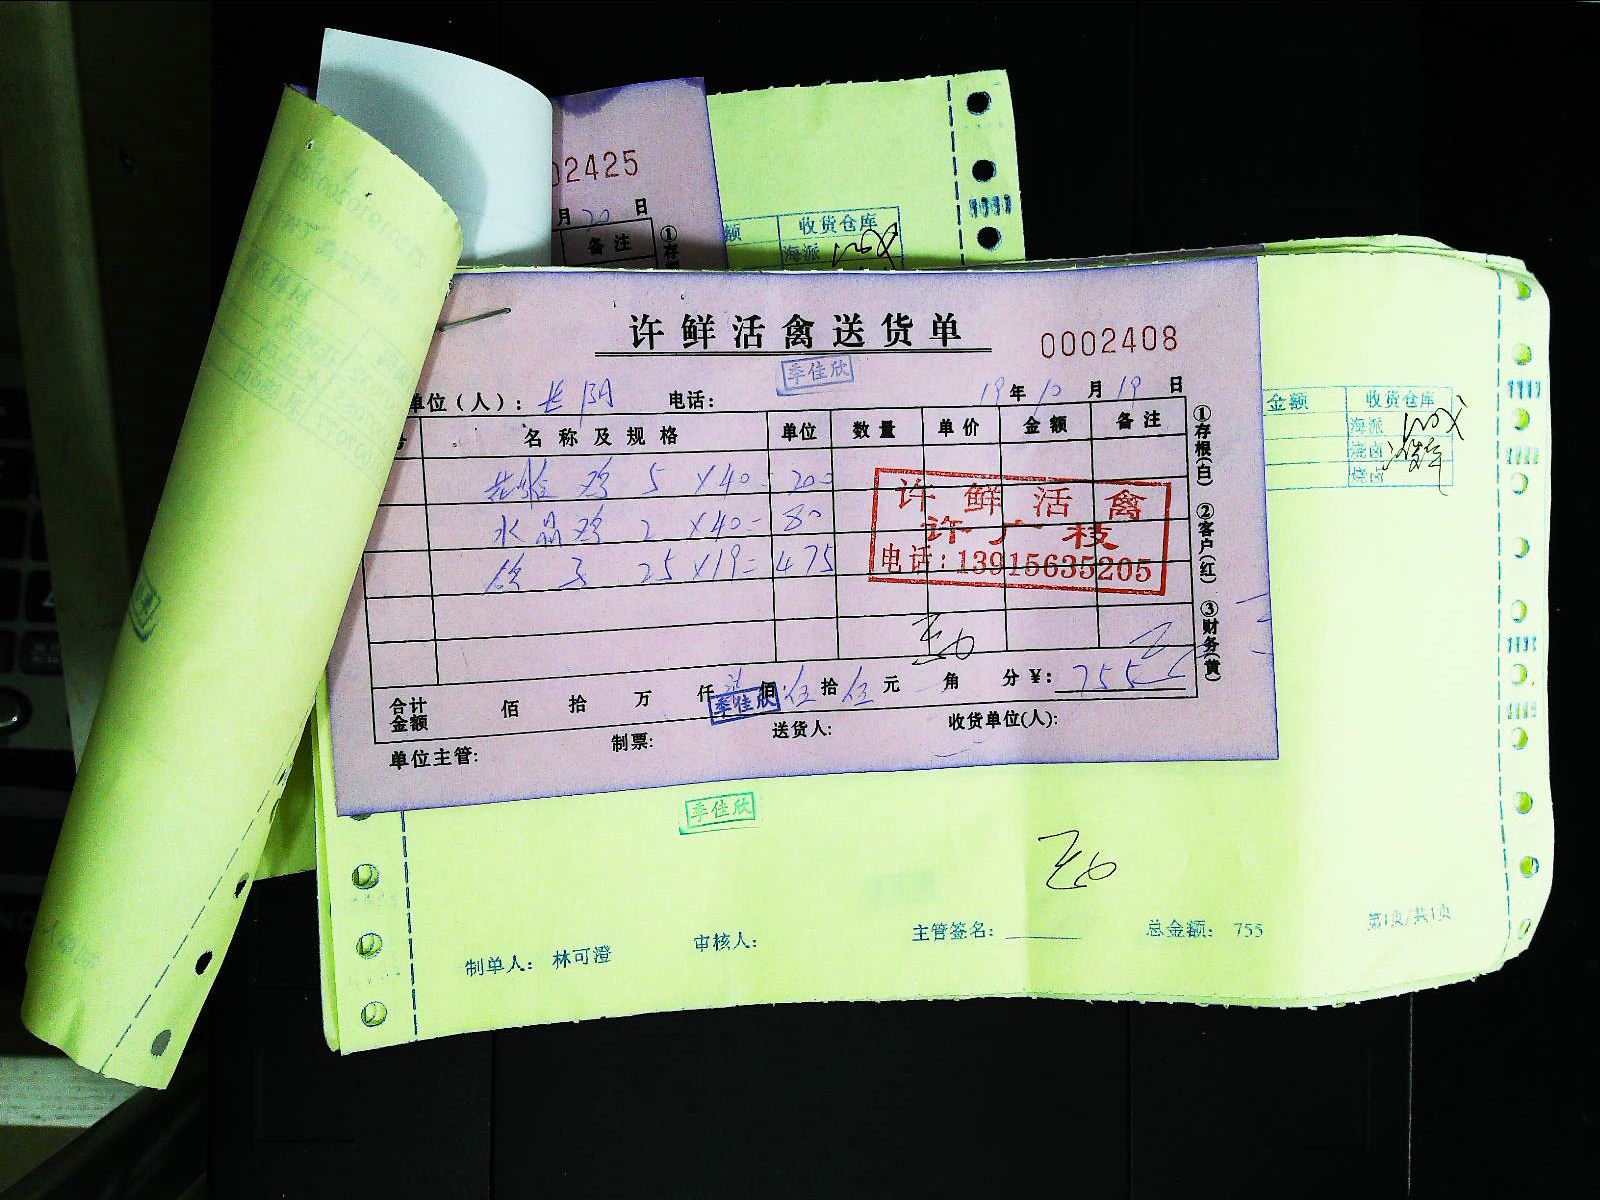 02425
月20日
备注
①存
额 收货仓库
海派
许鲜活禽送货单
0002408
季佳欣
单位(人): 长阴 电话: 19年10月19日
名称及规格 单位 数量 单价 金额 备注
鸡 5 ×40= 200
水晶鸡 2 ×40= 80
子 25 ×19= 475
许鲜活禽
许广枝
电话:13915635205
①存根(白) ②客户(红) ③财务(黄)
合计金额 佰 拾 万 仟 佰 伍拾伍元 角 分 ¥: 755
季佳欣
单位主管: 制票: 送货人: 收货单位(人):
金额 收货仓库
海派
烧卤
烧卤
季佳欣
制单人: 林可澄 审核人: 主管签名: 总金额: 755 第1页/共1页